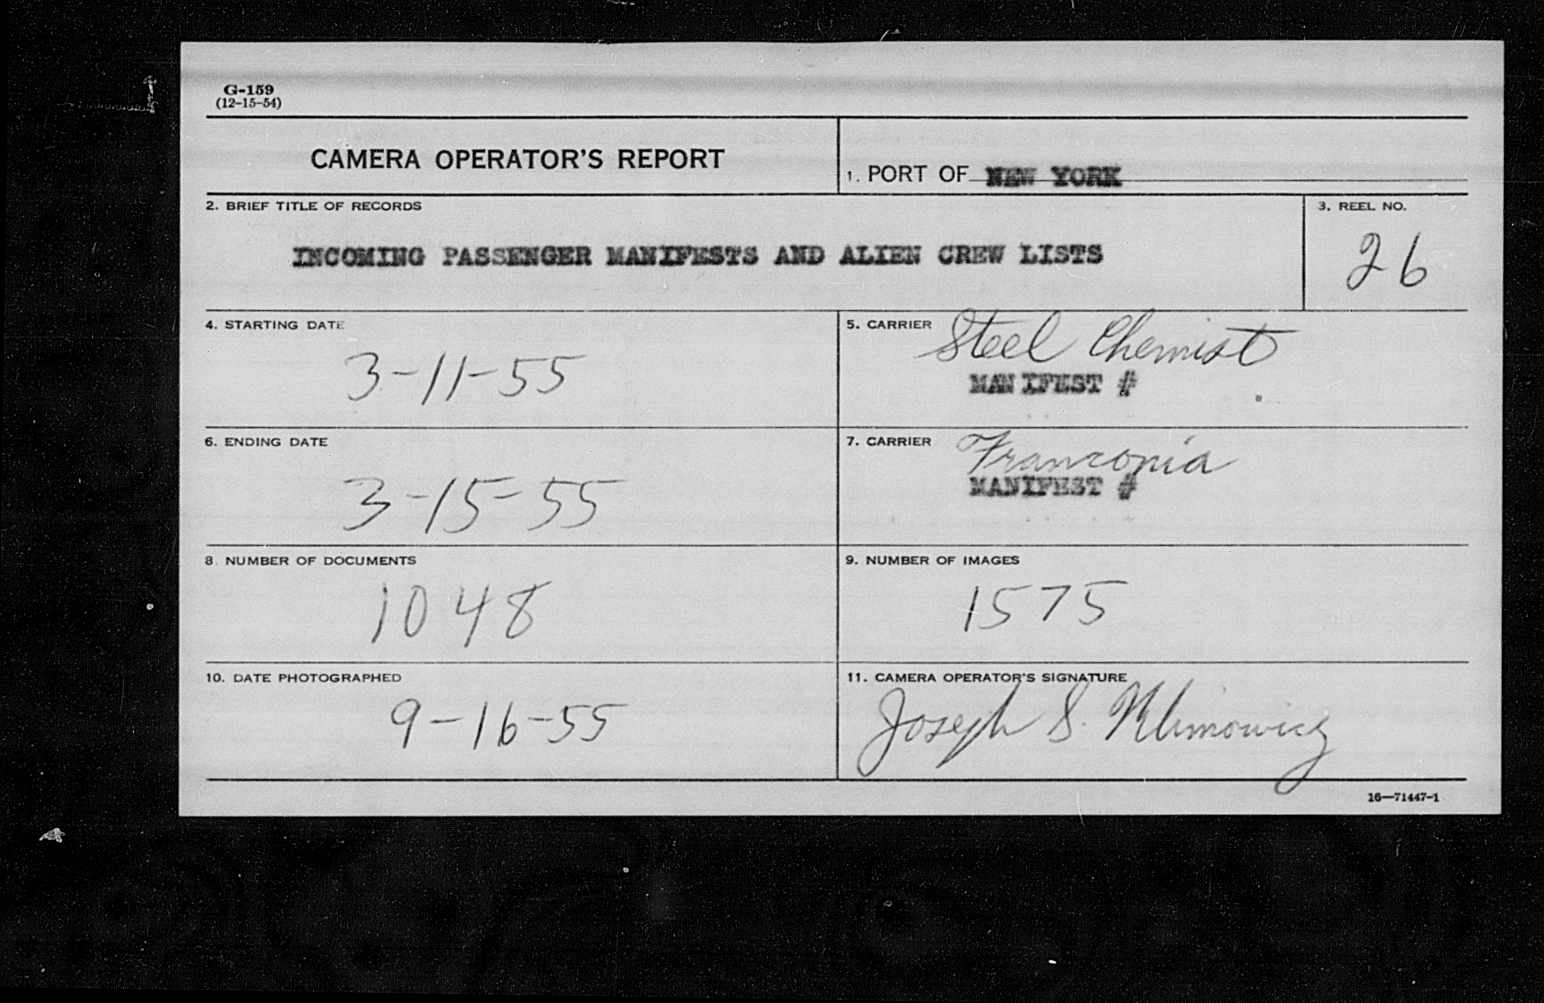 G-159
(12-15-54)
CAMERA OPERATOR'S REPORT
1. PORT OF NEW YORK
2. BRIEF TITLE OF RECORDS
INCOMING PASSENGER MANIFESTS AND ALIEN CREW LISTS
3. REEL NO.
26
4. STARTING DATE
3-11-55
5. CARRIER Steel Chemist
MANIFEST #
6. ENDING DATE
3-15-55
7. CARRIER Franconia
MANIFEST #
8. NUMBER OF DOCUMENTS
1048
9. NUMBER OF IMAGES
1575
10. DATE PHOTOGRAPHED
9-16-55
11. CAMERA OPERATOR'S SIGNATURE
Joseph S. Klimowicz
16—71447-1